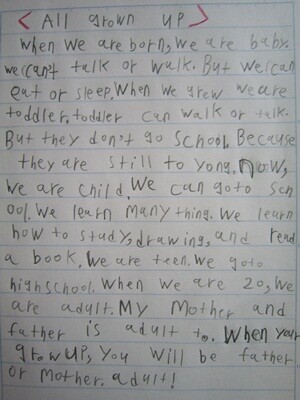 < All grown up >
When we are born, we are baby.
we can't talk or walk. But we can
eat or sleep. When we grew we are
toddler, toddler can walk or talk.
But they don't go school. Because
they are still to yong. now,
we are child. We can go to sch
ool. We learn many thing. We learn
how to study, drawing, and read
a book. we are teen. We go to
highschool. When we are 20, we
are adult. My Mother and
father is adult to. When your
grow up, you will be father
or mother. adult!